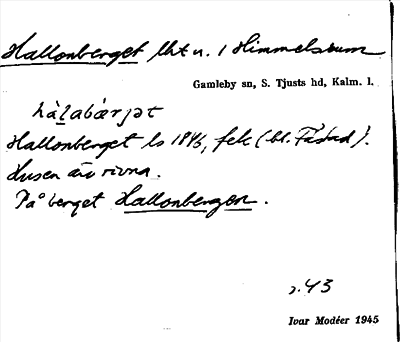 Hallonberget lht u. 1 Himmelsrum
Gamleby sn, S. Tjusts hd, Kalm. l.
hàlabærjət
Hallonberget ls 1846, fek (bl. Fästad).
Husen äro rivna.
På berget Hallonbergen.
s. 43
Ivar Modéer 1945